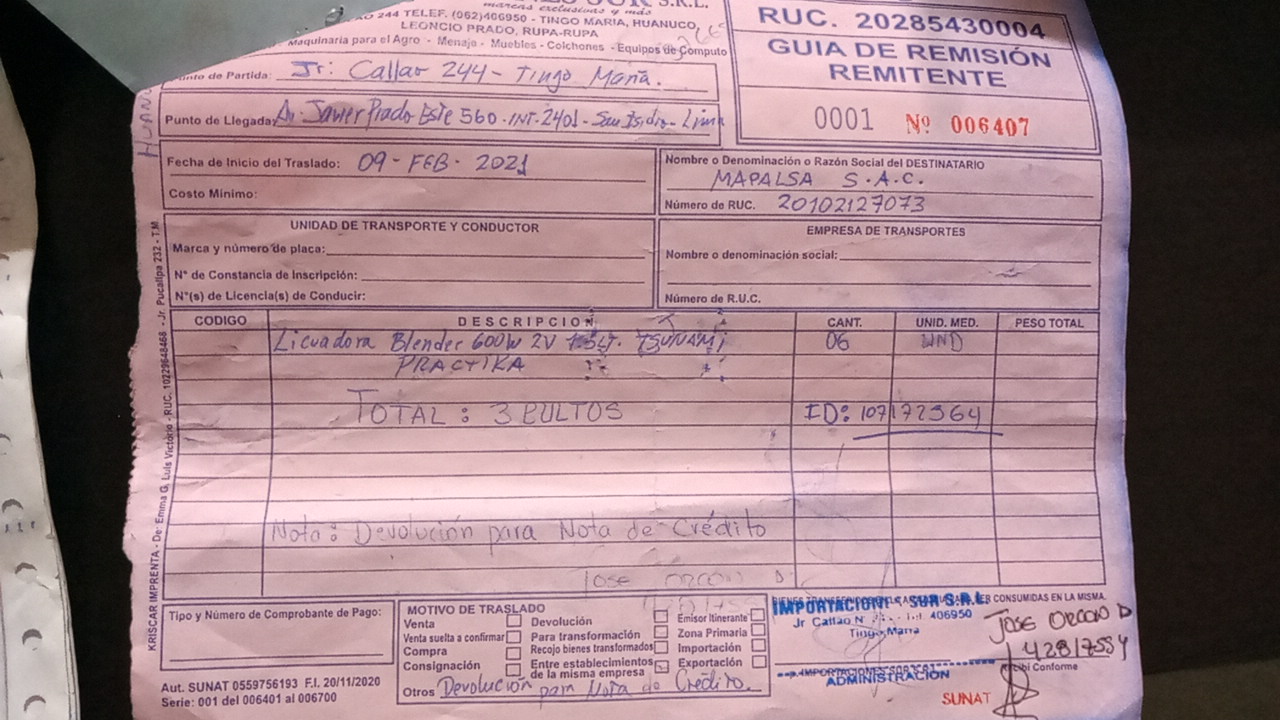 S.R.L.
marcas exclusivas y más
244 TELEF. (062)406950 - TINGO MARIA, HUANUCO,
LEONCIO PRADO, RUPA-RUPA
Maquinaria para el Agro - Menaje - Muebles - Colchones - Equipos de Computo
RUC. 20285430004
GUIA DE REMISIÓN
REMITENTE
0001 Nº 006407
de Partida: Jr. Callao 244 - Tingo Maria.
Punto de Llegada: Av. Javier Prado Este 560 - INT. 2401 - San Isidro - Lima
Fecha de Inicio del Traslado: 09 - FEB - 2021
Costo Mínimo:
Nombre o Denominación o Razón Social del DESTINATARIO
MAPALSA S.A.C.
Número de RUC. 20102127073
UNIDAD DE TRANSPORTE Y CONDUCTOR
Marca y número de placa:
N° de Constancia de Inscripción:
N°(s) de Licencia(s) de Conducir:
EMPRESA DE TRANSPORTES
Nombre o denominación social:
Número de R.U.C.
CODIGO DESCRIPCION CANT. UNID. MED. PESO TOTAL
Licuadora Blender 600W 2V TSUNAMI 06 UND
PRACTIKA
TOTAL: 3 BULTOS ID: 107172364
Nota: Devolución para Nota de Crédito
Jose D
KRISCAR IMPRENTA - De: Emma G. Luis Victorio - RUC. 10229648468 - Jr. Pucallpa 232 - T.M.
Tipo y Número de Comprobante de Pago:
Aut. SUNAT 0559756193 F.I. 20/11/2020
Serie: 001 del 006401 al 006700
MOTIVO DE TRASLADO
Venta
Venta suelta a confirmar
Compra
Consignación
Devolución
Para transformación
Recojo bienes transformados
Entre establecimientos
de la misma empresa
Emisor Itinerante
Zona Primaria
Importación
Exportación
Otros Devolución para Nota de Crédito.
CONSUMIDAS EN LA MISMA.
SUR S.R.L.
Jr Callao N° 406950
Tingo Maria
ADMINISTRACIÓN
42817554
Recibí Conforme
SUNAT